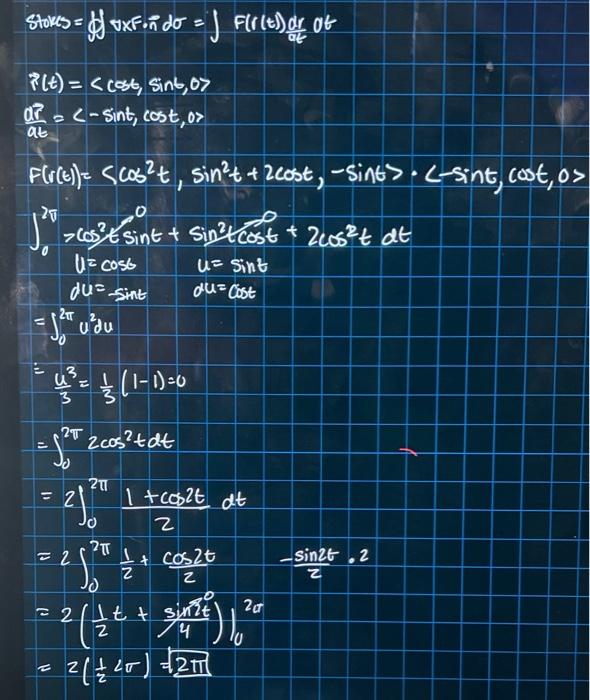 Stokes = ∯ ∇xF·n⃗ dσ = ∫ F(r(t)) dr/dt dt
r⃗(t) = <cost, sint, 0>
dr⃗/dt = <-sint, cost, 0>
F(r(t)) = <cos²t, sin²t + 2cost, -sint> · <-sint, cost, 0>
∫₀^2π -cos²t sint + sin²t cost + 2cos²t dt
0 0
u = cost u = sint
du = -sint du = cost
= ∫₀^2π u²du
= u³/3 = 1/3 (1-1) = 0
= ∫₀^2π 2cos²t dt
= 2∫₀^2π (1 + cos2t)/2 dt
= 2∫₀^2π 1/2 + cos2t/2 -sin2t/2 · 2
= 2(1/2 t + sin2t/4)|₀^2π 0
= 2(1/2 2π) = 2π